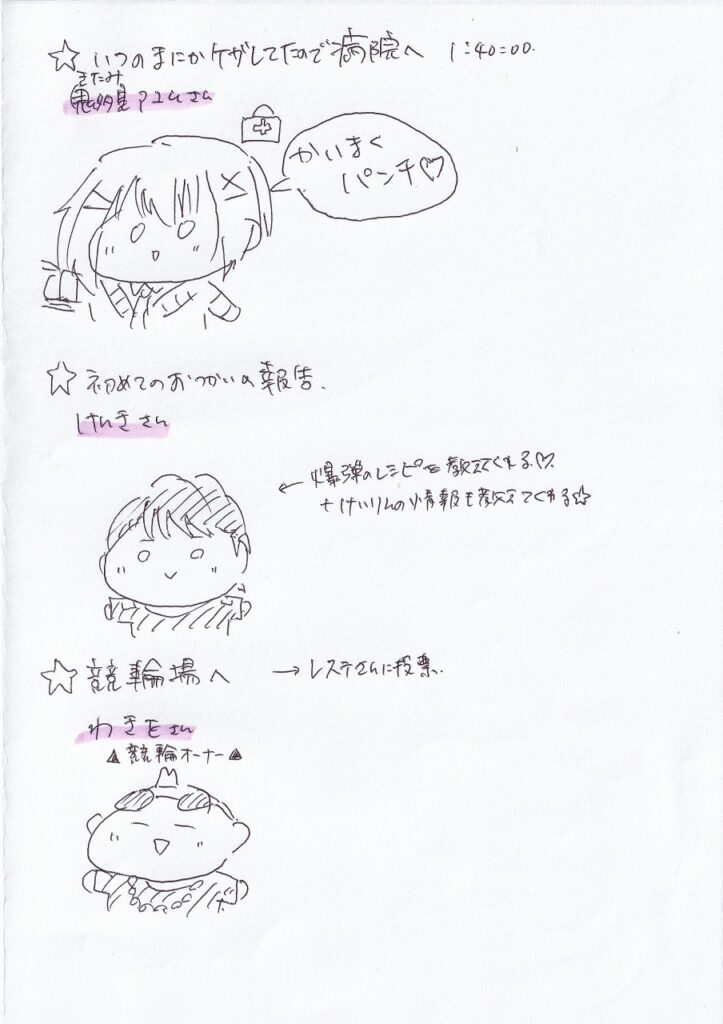 ☆ いつのまにかケガしてたので病院へ 1:40:00.
きたみ
鬼多見アユムさん
かいまく
パンチ♡
☆ 初めてのおつかいの報告.
けんきさん
← 爆弾のレシピを教えてくれる♡.
+ けいりんの情報も教えてくれる☆
☆ 競輪場へ → レステさんに投票.
わきをさん
▲競輪オーナー▲